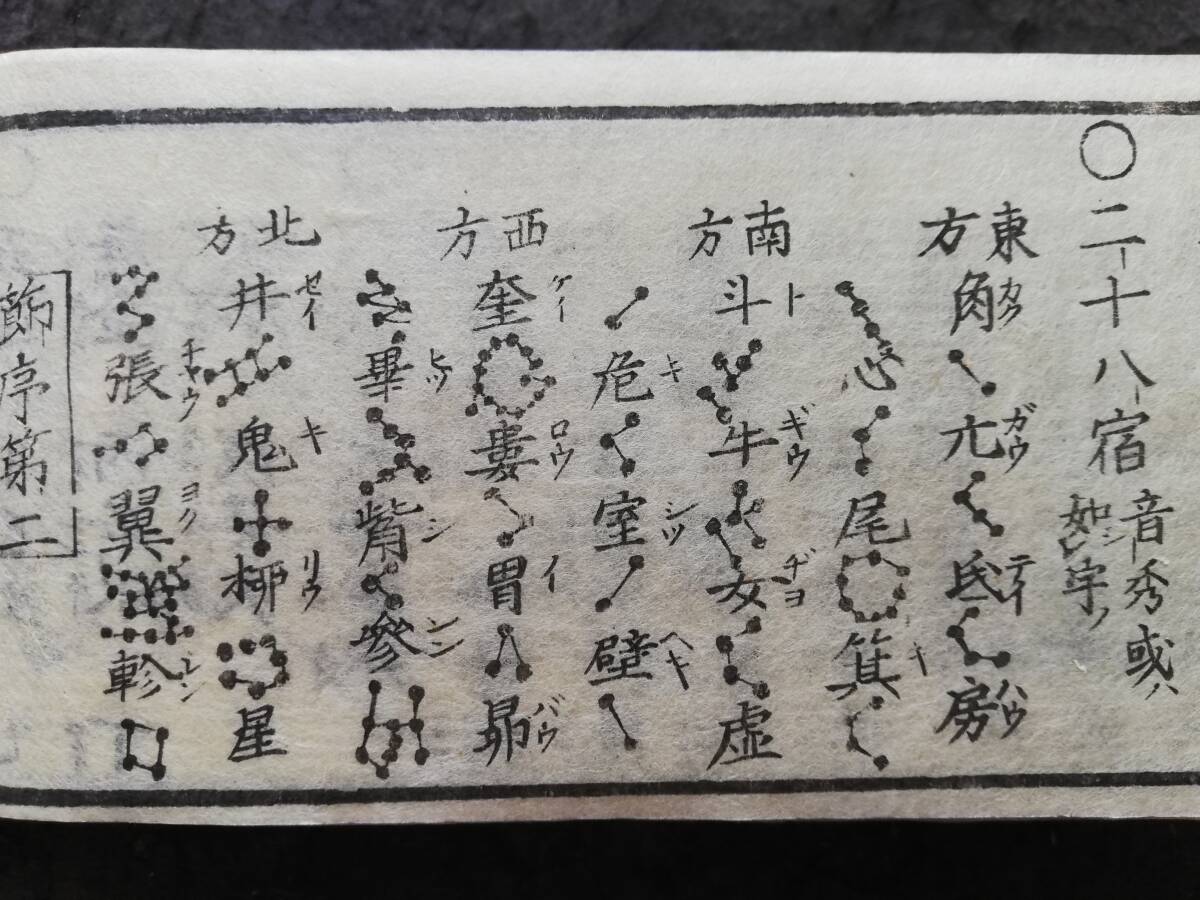 ○二十八宿 音秀或ハ如シ字ノ
東方 角カク 亢ガウ 氐テイ 房ハウ
心 尾 箕キ
南方 斗ト 牛ギウ 女ヂヨ 虚
危キ 室シツ 壁ヘキ
西方 奎ケイ 婁ロウ 胃イ 昴バウ
畢ヒツ 觜シ 參シン
北方 井セイ 鬼キ 柳リウ 星
張チヤウ 翼ヨク 軫シン
飾序第二